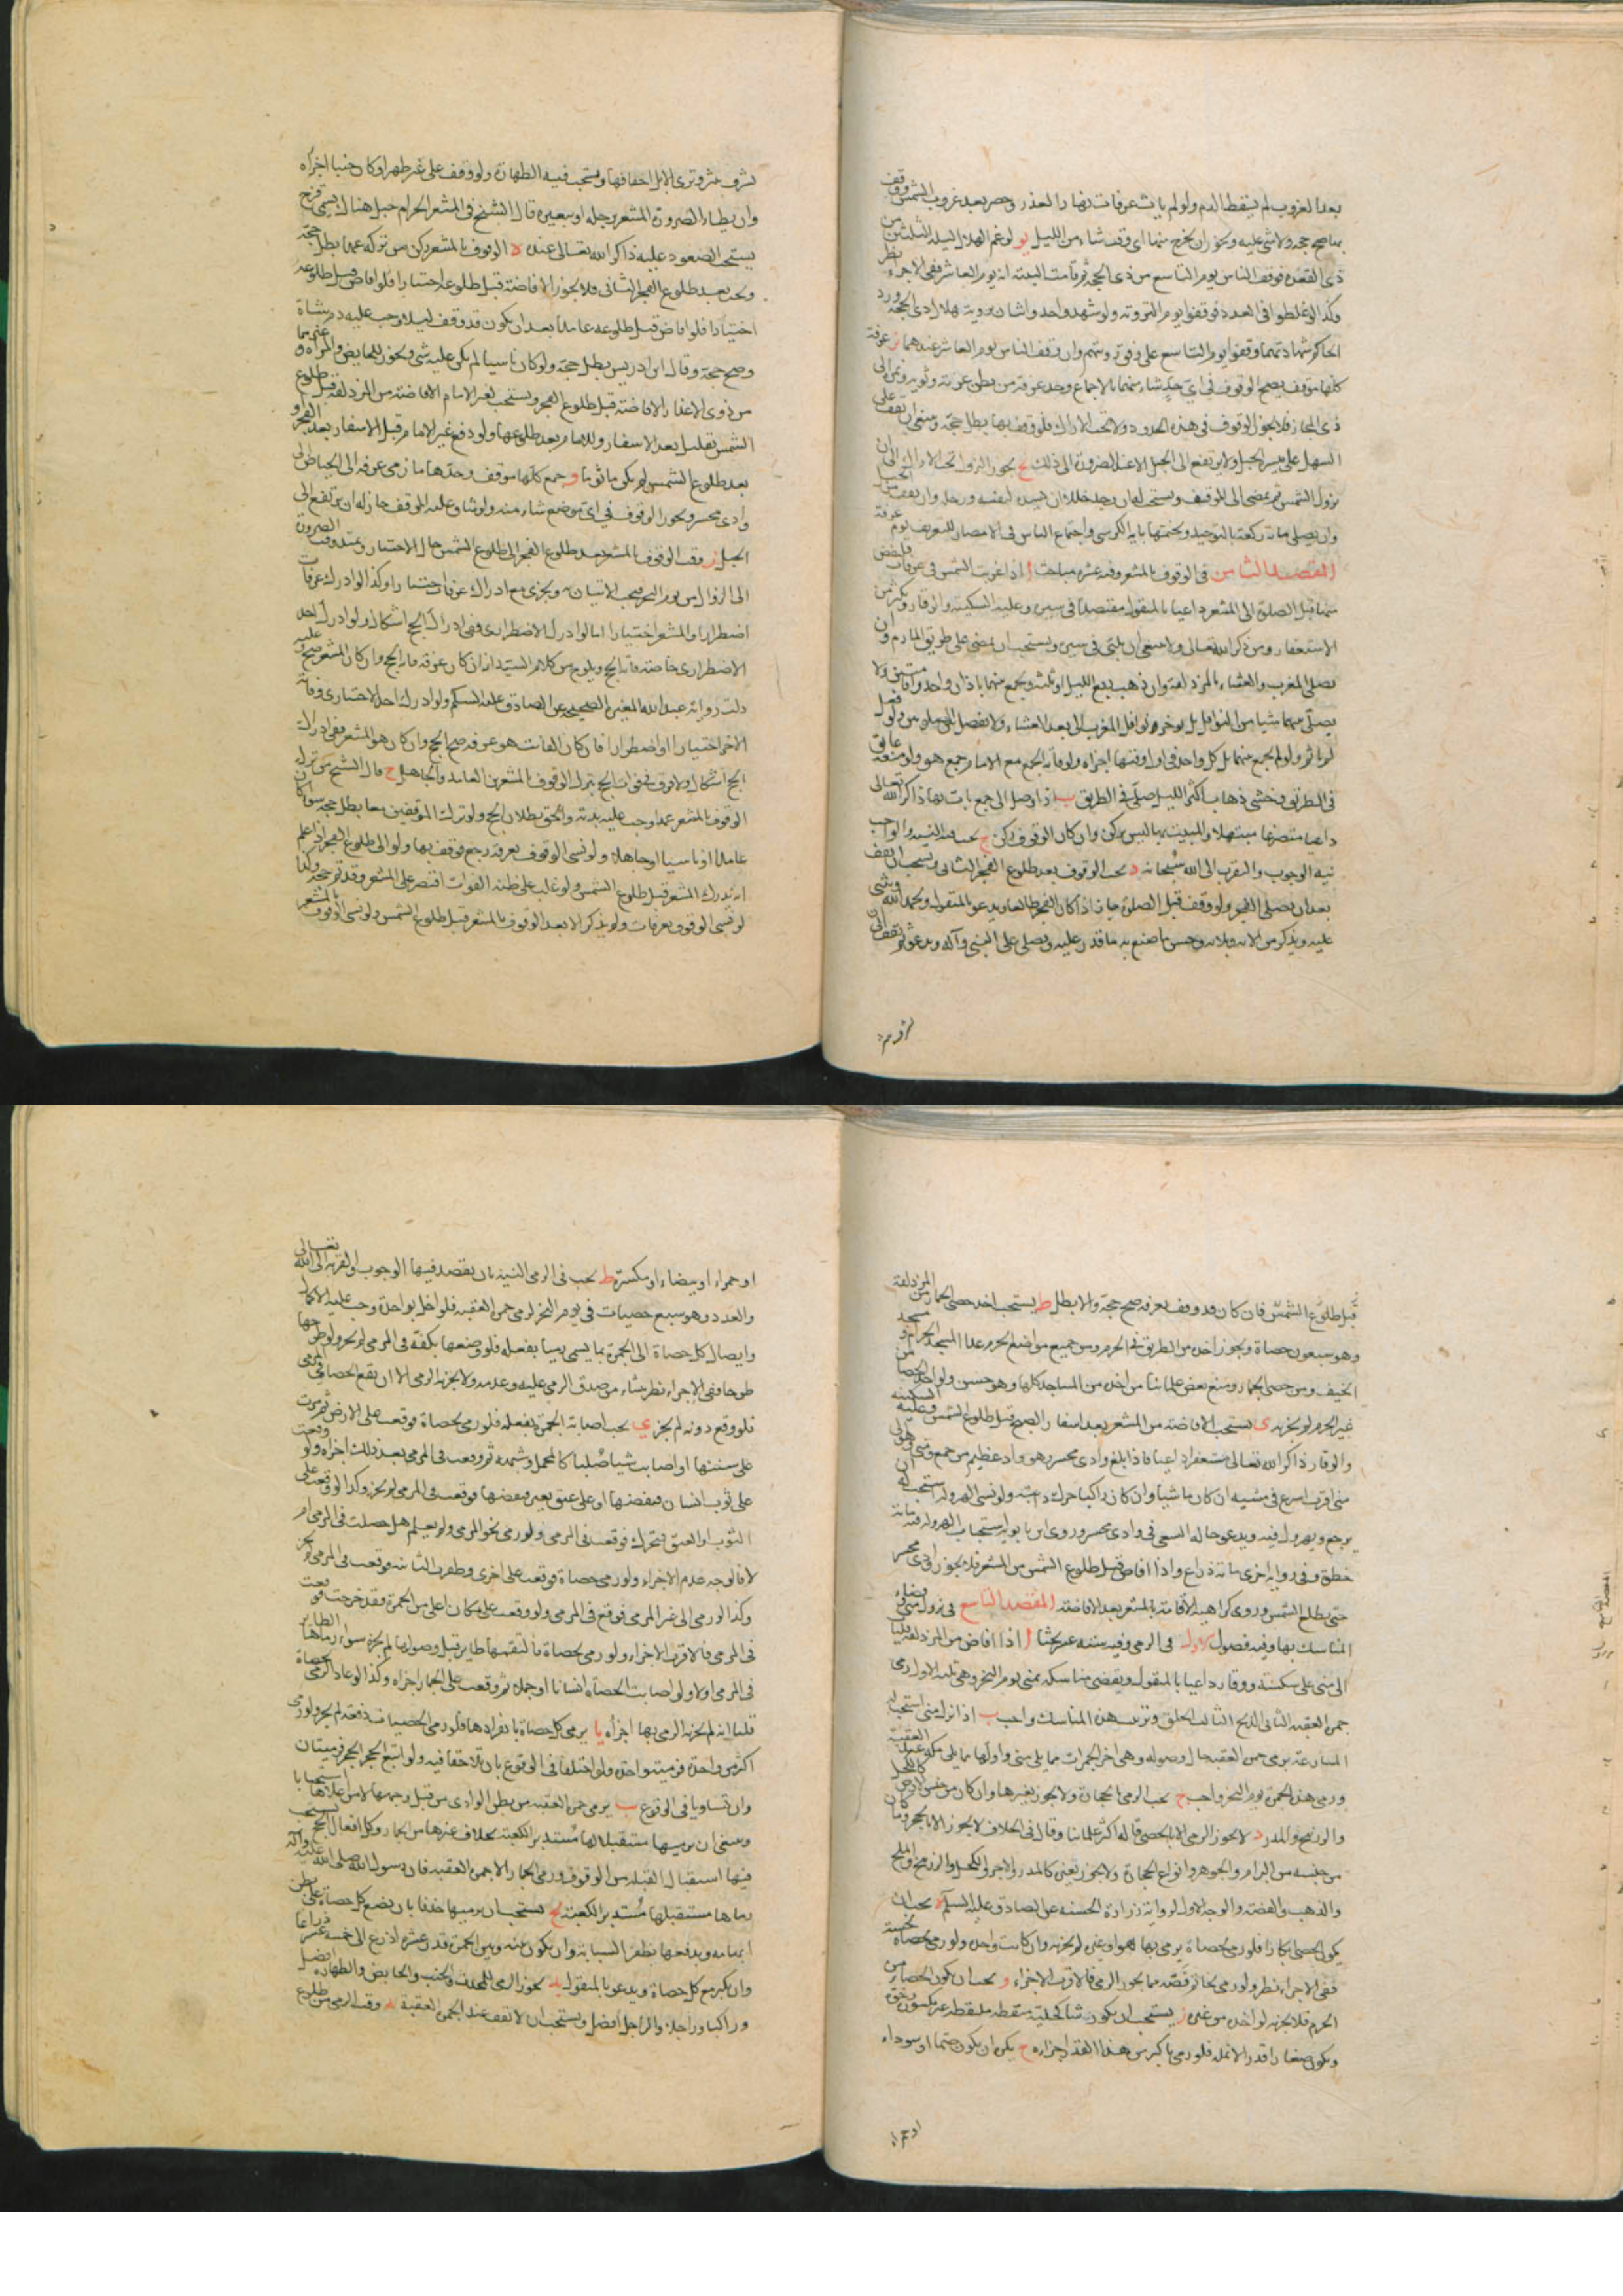 بعد الغروب لم يسقط الدم ولو لم يأت عرفات نهارا لعذر وحضر بعد غروب الشمس ووقف
بها صح حجه ولا شئ عليه ويجوز ان يخرج منها اى وقت شاء من الليل يو لو غم الهلال ليلة الثلثين من
ذى القعده فوقف الناس يوم التاسع من ذى الحجة ثم قامت البينة انه يوم العاشر ففى الاجزاء نظر
وكذا لو غلطوا فى العدد فوقفوا يوم التروية ولو شهد واحد او اثنان بروية هلال ذى الحجة ورد
الحاكم شهادتهما وقفوا يوم التاسع على وفق رويتهم وان وقف الناس يوم العاشر عندهما يز عرفة
كلها موقف يصح الوقوف فى اى حد شاء منها بالاجماع وحد عرفة من بطن عرنة وثوية ونمرة الى
ذى المجاز فلا يجوز الوقوف فى هذه الحدود ولا تحت الاراك فلو وقف بها بطل حجه وينبغى ان يقف على
السهل على ميسرة الجبل ولا يرتفع الى الجبل الا عند الضرورة الى ذلك يح يجوز النزول تحت الاراك الى ان
تزول الشمس ثم يمضى الى الموقف ويستحب له ان وجد خللا ان يسده بنفسه ورحله وان يقف
وان يصلى مائة ركعة بالتوحيد ويختمها باية الكرسى واجتماع الناس فى الامصار للتعريف يوم عرفة
المقصد الثامن فى الوقوف بالمشعر وفيه عشرة مباحث ا اذا غربت الشمس فى عرفات فليفض
منها قبل الصلوة الى المشعر داعيا بالمنقول مقتصدا فى سيره وعليه السكينة والوقار ويكثر من
الاستغفار ومن ذكر الله تعالى ولا ينبغى ان يلبى فى سيره ويستحب ان يمضى على طريق المازمين وان
يصلى المغرب والعشاء بالمزدلفة وان ذهب ربع الليل او ثلثه ويجمع بينهما باذان واحد واقامتين ولا
يصلى بينهما شيئا من النوافل بل يوخر نوافل المغرب الى بعد العشاء ولا يفصل بين الصلوتين ولو فعل
لم ياثم ولو لم يجمع بينهما بل صلى كل واحدة فى اول وقتها اجزاه ولو فاته الجمع مع الامام جمع هو ولو منعه عائق
فى الطريق وخشى ذهاب اكثر الليل صلى فى الطريق ب اذا وصل الى جمع بات بها ذاكرا لله تعالى
داعيا متضرعا مبتهلا والمبيت بها ليس بركن وان كان الوقوف ركن ج يجب فيه النية والواجب
نية الوجوب والتقرب الى الله سبحانه د يجب الوقوف بعد طلوع الفجر الثانى ويستحب ان يقف
بعد ان يصلى الفجر ولو وقف قبل الصلوة جاز اذا كان الفجر طالعا ويدعو بالمنقول ويحمد الله ويثنى
عليه ويذكر من الائه وبلائه وحسن ما صنع به ما قدر عليه ويصلى على النبى وآله ويدعو ثم يقف الى ان
تشرق ثبير وترى الابل اخفافها ويستحب فيه الطهارة ولو وقف على غير طهر او كان جنبا اجزاه
وان يطاء الصرورة المشعر برجله او ببعيره قال الشيخ فى المشعر الحرام جبل هناك يسمى قزح
يستحب الصعود عليه ذاكرا لله تعالى عنده ه الوقوف بالمشعر ركن من تركه عمدا بطل حجه
وحده بعد طلوع الفجر الثانى فلا يجوز الافاضة قبل طلوعه اختيارا فلو افاض قبل طلوعه
اختيارا فلو افاض قبل طلوعه عامدا بعد ان يكون قد وقف ليلا وجب عليه دم شاة
وصح حجه وقال ابن ادريس يبطل حجه ولو كان ناسيا لم يكن عليه شئ ويجوز للحايض والمراة وغيرهما
من ذوى الاعذار الافاضة قبل طلوع الفجر ويستحب لغير الامام الافاضة من المزدلفة قبل طلوع
الشمس بقليل بعد الاسفار وللامام بعد طلوعها ولو دفع غير الامام قبل الاسفار بعد الفجر و
بعد طلوع الشمس لم يكن ماثوما و جمع كلها موقف وحدها ما زمى عرفة الى الحياض الى
وادى محسر ويجوز الوقوف فى اى موضع شاء منه ولو شاق عليه الموقف جاز له ان يرتفع الى
الجبل ز وقت الوقوف بالمشعر بعد طلوع الفجر الى طلوع الشمس حال الاختيار ويمتد وقت الضرورة
الى الزوال من يوم النحر فيجب الاتيان به ويجزى مع ادراك عرفات اختيارا وكذا لو ادرك عرفات
اضطرارا والمشعر اختيارا اما لو ادرك الاضطرارى ففى ادراك الحج اشكال ولو ادرك احد
الاضطرارى خاصة فاته الحج ويلوح من كلام السيد انه ان كان عرفه فاته الحج وان كان المشعر صح وعليه
دلت رواية عبد الله بن المغيرة الصحيحة عن الصادق عليه السلام ولو ادرك احد الاختيارى وفاته
الاخر اختيارا او اضطرارا فان كان الفائت هو عرفه صح الحج وان كان هو المشعر ففى ادراك
الحج اشكال ولا فرق فى فوات الحج بترك الوقوف بالمشعر بين العامد والجاهل ح قال الشيخ من ترك
الوقوف بالمشعر عمدا وجب عليه بدنة والحق بطلان الحج ولو ترك الموقفين معا بطل حجه سواء كان
عامدا او ناسيا او جاهلا ولو نسى الوقوف بعرفة رجع فوقف بها ولو الى طلوع الفجر اذا علم
انه يدرك المشعر قبل طلوع الشمس ولو غلب على ظنه الفوات اقتصر على المشعر وقد تم حجه وكذا
لو نسى الوقوف بعرفات ولم يذكر الا بعد الوقوف بالمشعر قبل طلوع الشمس ولو نسى الوقوف بالمشعر
قبل طلوع الشمس فان كان قد وقف بعرفة صح حجه والا بطل ط يستحب اخذ حصى الجمار من المزدلفة
وهو سبعون حصاة ويجوز اخذه من الطريق فى الحرم ومن جميع مواضع الحرم عدا المسجد الحرام ومسجد
الخيف ومن حصى الجمار ومنع بعض علمائنا من اخذه من المساجد كلها وهو حسن ولو اخذ الحصا من
غير الحرم لم يجزيه ى يستحب الافاضة من المشعر بعد اسفار الصبح قبل طلوع الشمس وعليه السكينة
والوقار ذاكرا لله تعالى مستغفرا داعيا فاذا بلغ وادى محسر وهو واد عظيم بين جمع ومنى وهو الى
منى اقرب اسرع فى مشيه ان كان ماشيا وان كان راكبا حرك دابته ولو نسى الهرولة استحب له ان
يرجع ويهرول فيه ويدعو حالة السعى فى وادى محسر وروى ابن بابويه استحباب الهرولة فيه مائة
خطوة وفى رواية اخرى مائة ذراع واذا افاض قبل طلوع الشمس من المشعر فلا يجوز وادى محسر
حتى يطلع الشمس وروى كراهية الاقامة بالمشعر بعد الافاضة المقصد التاسع فى نزول منى وقضاء
المناسك بها وفيه فصول الاول فى الرمى وفيه ستة عشر بحثا ا اذا افاض من المزدلفة فليات
الى منى على سكينة ووقار داعيا بالمنقول ويقضى مناسكه بمنى يوم النحر وهى ثلثة الاول رمى
جمرة العقبة الثانى الذبح الثالث الحلق وترتيب هذه المناسك واجب ب اذا نزل منى استحب له
المسارعة برمى جمرة العقبة حال وصوله وهى اخر الجمرات مما يلى منى واولها مما يلى مكة عند العقبة
ورمى هذه الجمرة يوم النحر واجب ج يجب الرمى بالحجارة ولا يجوز بغيرها وان كان من جنس الارض كالكحل
والزرنيخ والمدر د لا يجوز الرمى الا بالحصى قاله اكثر علمائنا وقال فى الخلاف لا يجوز الا بالحجر وما كان
من جنسه من البرام والجوهر وانواع الحجارة ولا يجوز بغيره كالمدر والاجر والكحل والزرنيخ والملح
والذهب والفضة والوجه الاول لرواية زرارة الحسنة عن الصادق عليه السلام ه يجب ان
يكون الحصى ابكارا فلو رمى بحصاة رمى بها هو او غيره لم يجزيه وان كانت واحدة ولو رمى بحصاة نجسة
ففى الاجزاء نظر ولو رمى بخاتم فصه مما يجوز الرمى فالاقرب الاجزاء و يجب ان يكون الحصا من
الحرم فلا يجزيه لو اخذه من غيره ز يستحب ان يكون كحلية منقطة ملتقطة غير مكسرة رخوة
ويكون صغارا قدر الانملة فلو رمى باكبر من هذا القدر اجزاه ح يكره ان يكون صما او سوداء
او حمراء او بيضاء او مكسرة ط يجب فى الرمى النية بان يقصد فيها الوجوب والقربة الى الله تعالى
والعدد وهو سبع حصيات فى يوم النحر لرمى جمرة العقبة فلو اخل بواحدة وجب عليه الاكمال
وايصال كل حصاة الى الجمرة بما يسمى رميا بفعله فلو وضعها بكفه فى المرمى لم يجز ولو طرحها
طرحا ففى الاجزاء نظر ينشاء من صدق الرمى عليه وعدمه ولا يجزيه الرمى الا ان تقع الحصا فى المرمى
فلو وقع دونه لم يجز ى يجب اصابة الجمرة بفعله فلو رمى بحصاة فوقعت على الارض ثم مرت
على سننها او اصابت شيئا صلبا كالمحمل وشبهه ثم وقعت فى المرمى بعد ذلك اجزاه ولو وقعت
على ثوب انسان فنفضها او على عنق بعير فنفضها فوقعت فى المرمى لم يجز وكذا لو وقعت على
الثوب او العنق فتحرك فوقعت فى المرمى ولو رمى نحو المرمى ولم يعلم هل حصلت فى المرمى ام
لا فالوجه عدم الاجزاء ولو رمى حصاة فوقعت على اخرى وطفرت الثانية فوقعت فى المرمى لم يجز
وكذا لو رمى الى غير المرمى فوقع فى المرمى ولو وقعت على مكان اعلى من الجمرة فتدحرجت فوقعت
فى المرمى فالاقرب الاجزاء ولو رمى بحصاة فالتقمها طاير قبل وصولها لم يجزه سواء رماها الطاير
فى المرمى اولا ولو اصابت الحصاة انسانا او جملا ثم وقعت على الجمار اجزاه وكذا لو عاد الرمى بحصاة
قلنا انه لم يجزه الرمى بها اجزاه يا يرمى كل حصاة بانفرادها فلو رمى الحصيات دفعة لم يجز ولو رمى
اكثر من واحدة فرمية واحدة ولو اختلفا فى الوقوع بان تلاحقا فيه ولو اتبع الحجر الحجر فرميتان
وان تساويا فى الوقوع يب يرمى جمرة العقبة من بطن الوادى من قبل وجهها لا من اعلاها استحبابا
وينبغى ان يرميها مستقبلا لها مستدبر الكعبة بخلاف غيرها من الجمار وكل افعال الحج يستحب
فيها استقبال القبلة من الوقوف ورمى الجمار الا جمرة العقبة فان رسول الله صلى الله عليه وآله
رماها مستقبلها مستدبر الكعبة يج يستحب ان يرميها خذفا بان يضع كل حصاة على بطن
ابهامه ويدفعها بظفر السبابة وان يكون بينه وبين الجمرة قدر عشرة اذرع الى خمسة عشر ذراعا
وان يكبر مع كل حصاة ويدعو بالمنقول يد يجوز الرمى للمحدث والجنب والحايض والطهارة افضل
وراكبا وراجلا والراجل افضل ويستحب ان لا يقف عند الجمرة العقبة يه وقت الرمى من طلوع